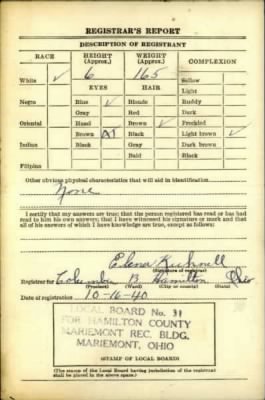 REGISTRAR'S REPORT
DESCRIPTION OF REGISTRANT
RACE HEIGHT (Approx.) WEIGHT (Approx.) COMPLEXION
White ✓ 6 165 Sallow
EYES HAIR Light
Negro Blue ✓ Blonde Ruddy
Gray Red Dark
Oriental Hazel Brown ✓ Freckled
Brown Black Light brown ✓
Indian Black Gray Dark brown
Bald Black
Filipino
Other obvious physical characteristics that will aid in identification
None
I certify that my answers are true; that the person registered has read or has had
read to him his own answers; that I have witnessed his signature or mark and that
all of his answers of which I have knowledge are true, except as follows:
Elena
(Signature of registrar)
Registrar for Columbia B Hamilton Ohio
(Precinct) (Ward) (City or county) (State)
Date of registration 10-16-40
LOCAL BOARD No. 31
FOR HAMILTON COUNTY
MARIEMONT REC. BLDG.
MARIEMONT, OHIO
(STAMP OF LOCAL BOARD)
(The stamp of the Local Board having jurisdiction of the registrant shall be
placed in the above space.)